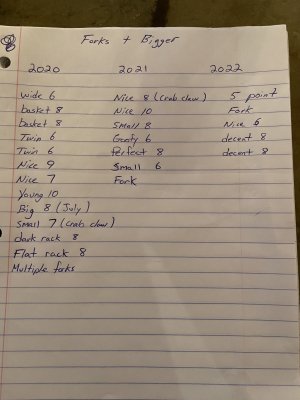 Forks + Bigger
2020 2021 2022
Wide 6 Nice 8 (Crab claw) 5 point
basket 8 Nice 10 Fork
basket 8 Small 8 Nice 6
Twin 6 Goofy 6 decent 8
Twin 6 Perfect 8 decent 8
Nice 9 Small 6
Nice 7 Fork
Young 10
Big 8 (July)
Small 7 (Crab claw)
dark rack 8
Flat rack 8
Multiple forks